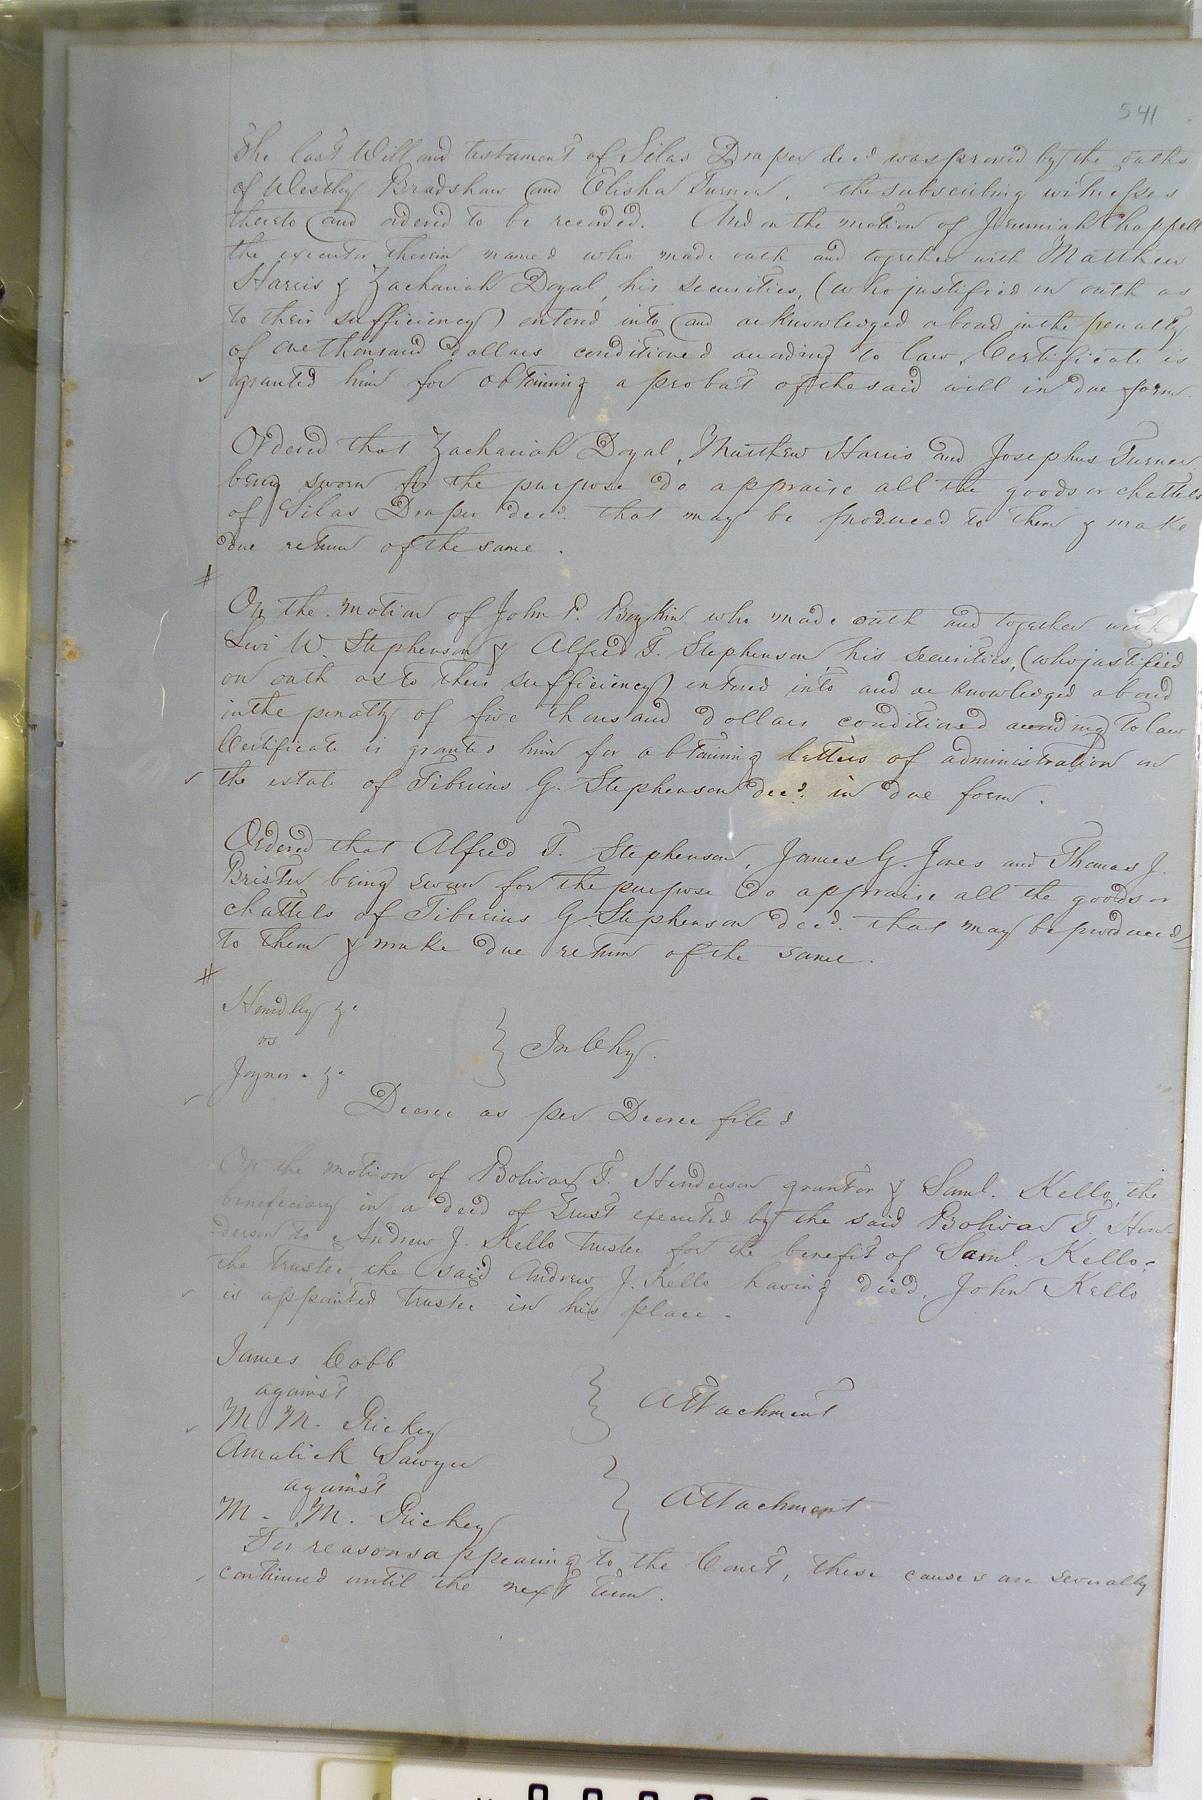 541
The last Will and testament of Silas Draper decd was proved by the oaths
of Westley Bradshaw and Elisha Turner, the subscribing witnesses
thereto and ordered to be recorded. And on the motion of Jeremiah Chappell
the executor therein named who made oath and together with Matthew
Harris & Zachariah Doyal, his securities, (who justified on oath as
to their sufficiency) entered into and acknowledged a bond in the penalty
of one thousand dollars conditioned according to law, Certificate is
granted him for obtaining a probat of the said will in due form.
Ordered that Zachariah Doyal, Matthew Harris and Josephus Turner
being sworn for the purpose do appraise all the goods or chattels
of Silas Draper decd. that may be produced to them & make
due return of the same.
#
On the motion of John P. Boykin who made oath and together with
Levi W. Stephenson & Alfred T. Stephenson his securities, (who justified
on oath as to their sufficiency) entered into and acknowledged a bond
in the penalty of five thousand dollars conditioned according to law
Certificate is granted him for obtaining letters of administration on
the estate of Tiberius G. Stephenson decd. in due form.
Ordered that Alfred T. Stephenson, James G. Jones and Thomas J.
Brister being sworn for the purpose do appraise all the goods or
chattels of Tiberius G. Stephenson decd. that may be produced
to them & make due return of the same.
#
vs } In Chy.
Joyner &c
Decree as per Decree filed
On the motion of Bolivar T. Henderson grantor & Saml. Kello, the
beneficiary in a deed of Trust executed by the said Bolivar T. Hen-
derson to Andrew J. Kello trustee for the benefit of Saml. Kello,
the trustee, the said Andrew J. Kello having died, John Kello
is appointed trustee in his place.
James Cobb
against } Attachment
M. M. Rickey
Amalick Sawyer
against } Attachment
M. M. Rickey
For reasons appearing to the Court, these causes are severally
continued until the next term.